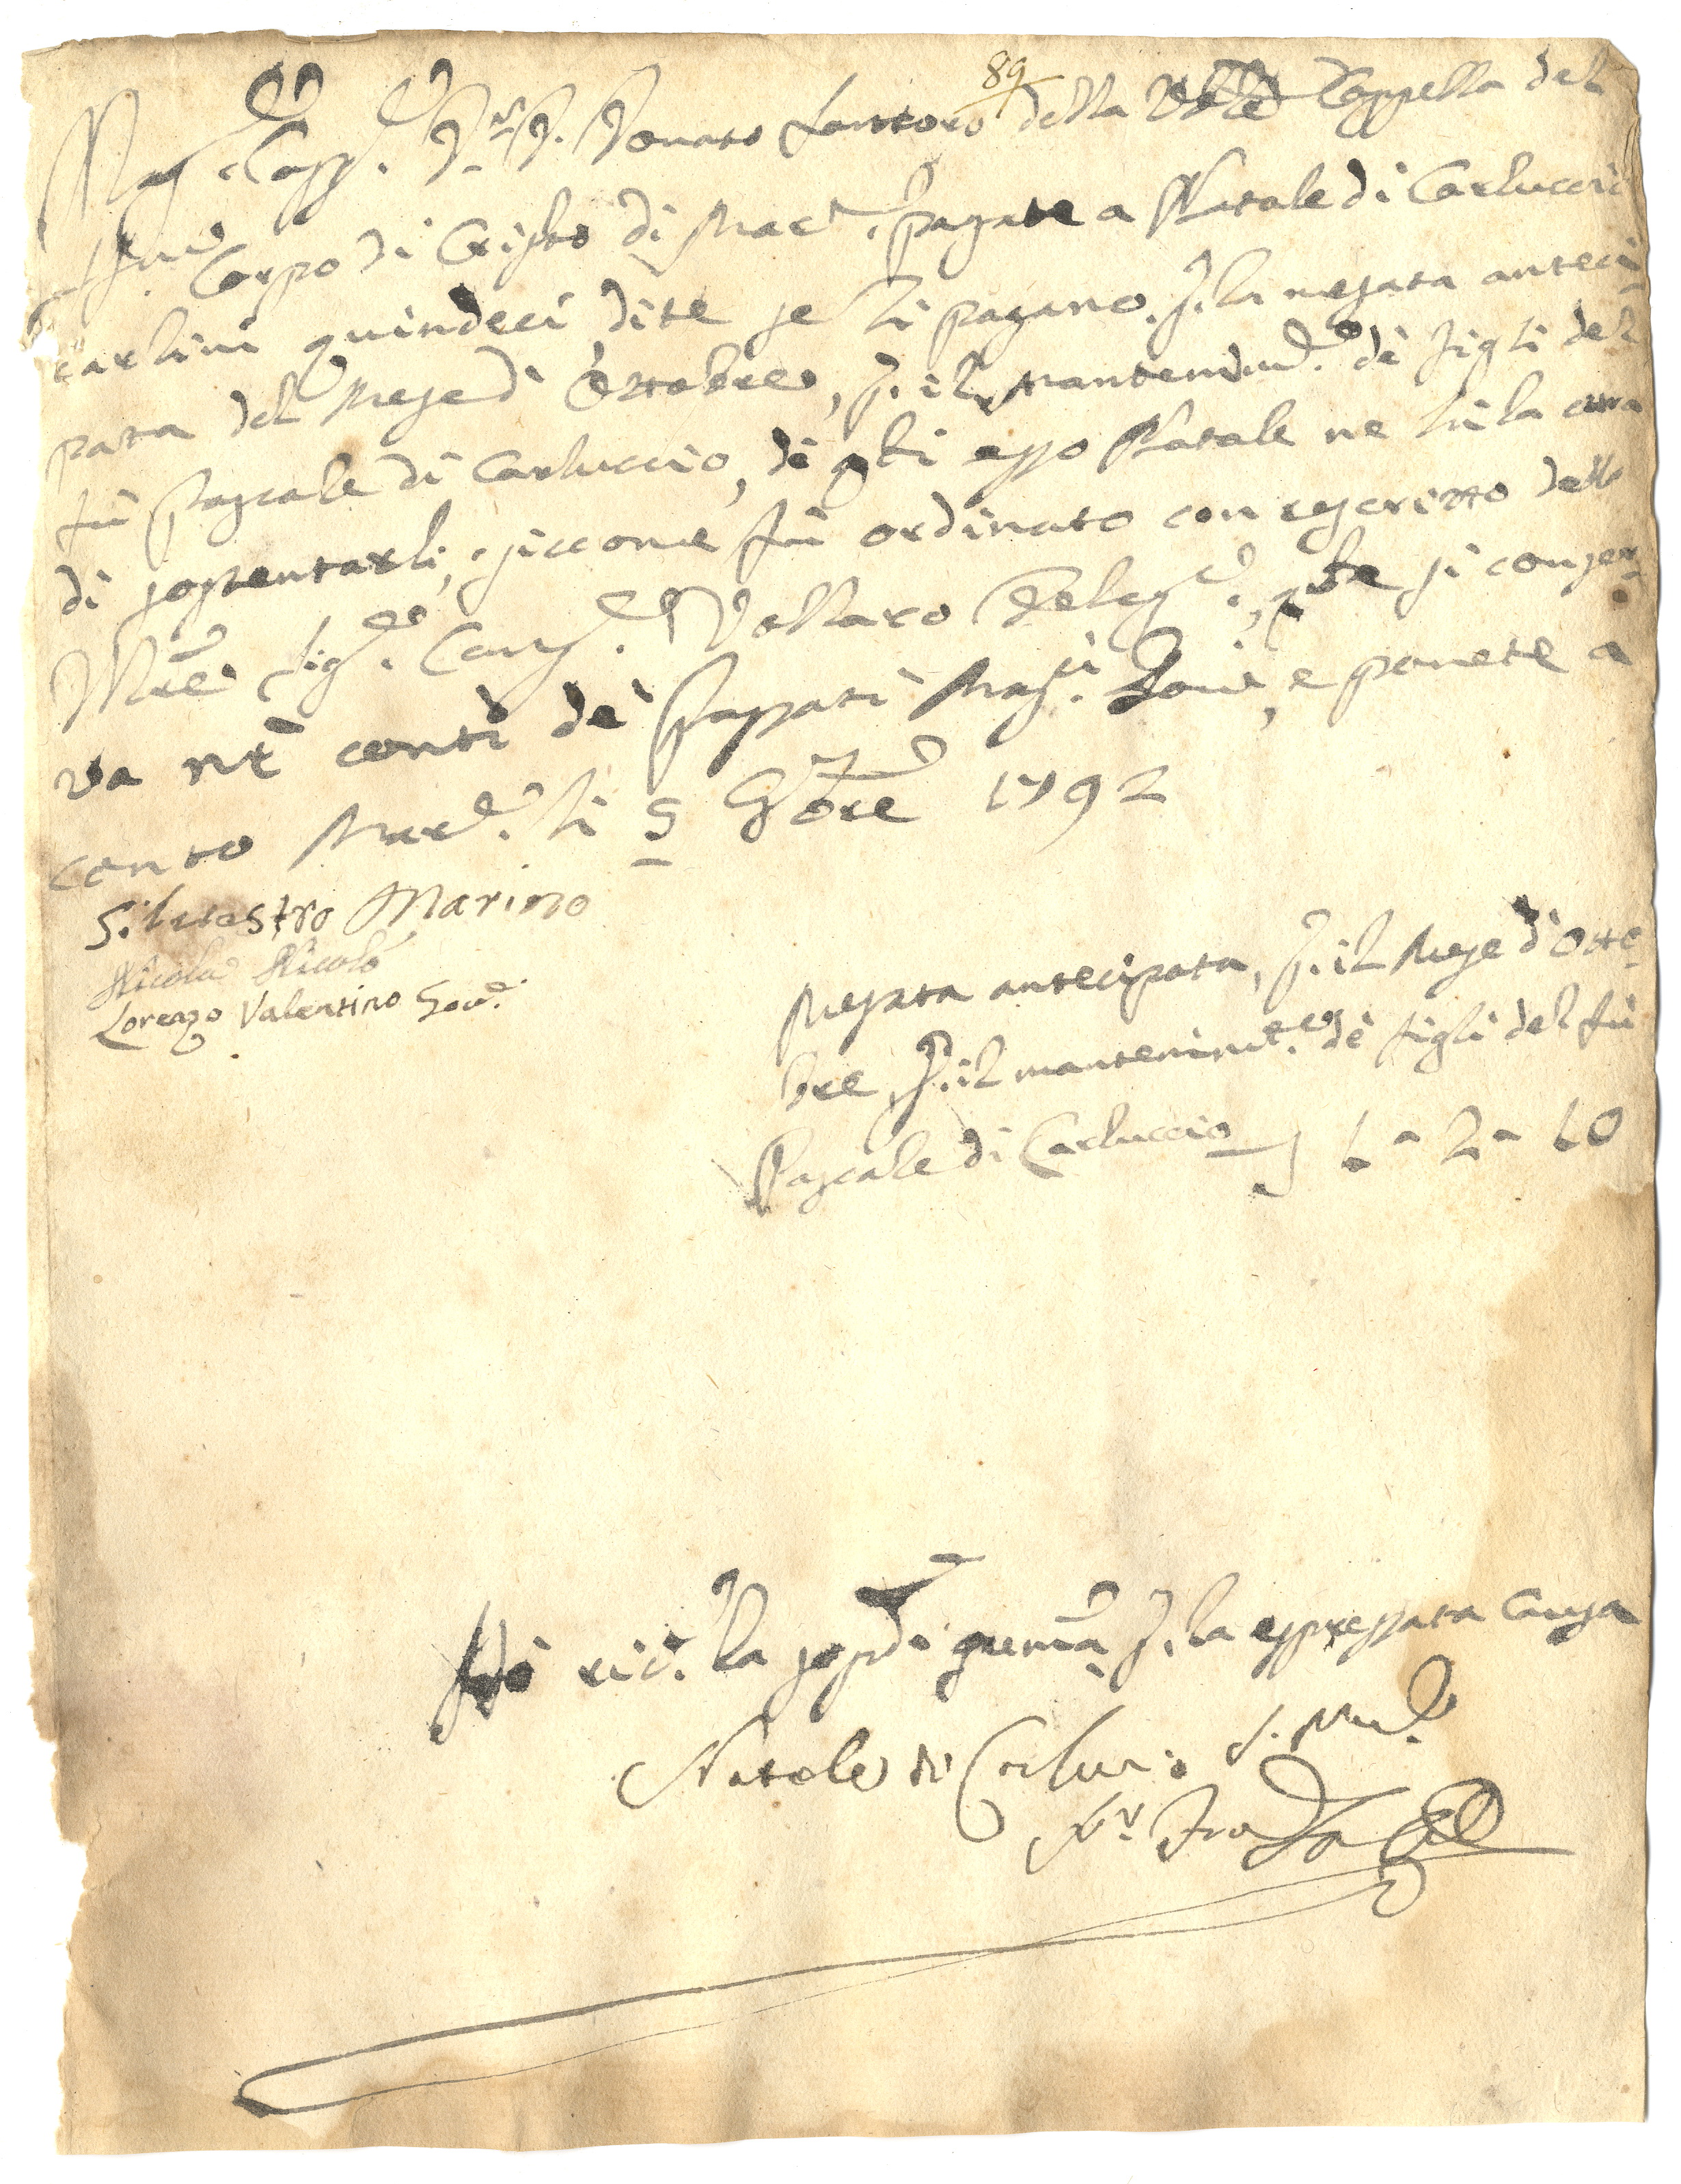 89
Mag.co Capp.no D.r D. Donato Santoro della Ve:le Cappella del
SS.mo Corpo di Cristo di Mar.e pagate a Natale di Carluccio
carlini quindeci, dite se li pagano p. la mesata anteci
pata del Mese di Ottobre, p. il mantenim.to de' figli del
fù Pascale di Carluccio, di q.li esso Natale ne hà la cura
di sostentarli, siccome fù ordinato con rescritto dell'
Ill.re Sig.e Con.re Vollaro Deleg.o, q.le si conser
va ne' conti de' passati Mag.ci Gov.i, e ponete a
conto Mar.e li 5 9bre 1792
Silvestro Marino
Nicola Nicolò
Lorenzo Valentino Gov.e
Mesata antecipata, p. il Mese d'Otto
bre, p. il mantenim.to de' figli del fù
Pascale di Carluccio 1 - 2 - 10
Hò ric.to la soprad.a summa p. la espressata causa
Natale di Carluccio